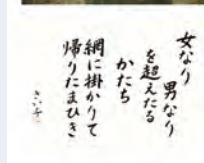 女なり
男なり
を超えたる
かたち
網に掛かりて
帰りたまひき